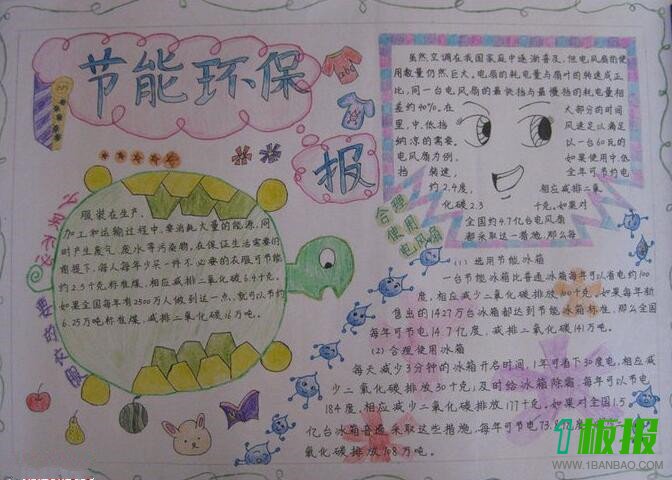 节能环保
报
abc
少买不必
要的衣服
服装在生产、
加工和运输过程中,要消耗大量的能源,同
时产生废气、废水等污染物,在保证生活需要的
前提下,每人每年少买一件不必要的衣服可节能
约2.5千克标准煤,相应减排二氧化碳6.4千克。
如果全国每年有2500万人做到这一点,就可以节约
6.25万吨标准煤,减排二氧化碳16万吨。
合理
使用
电风扇
虽然空调在我国家庭中逐渐普及,但电风扇的使
用数量仍然巨大。电扇的耗电量与扇叶的转速成正
比,同一台电风扇的最快挡与最慢挡的耗电量相
差约40%。在 大部分的时间
里,中、低挡 风速足以满足
纳凉的需要。 以一台60瓦的
电风扇为例, 如果使用中、低
挡 转速, 全年可节约电
约2.4度, 相应减排二氧
化碳2.3 千克。如果对
全国约4.7亿台电风扇
都采取这一措施,那么每
(1) 选用节能冰箱
一台节能冰箱比普通冰箱每年可以省电约100
度,相应减少二氧化碳排放100千克。如果每年新
售出的1427万台冰箱都达到节能冰箱标准,那么全国
每年可节电14.7亿度,减排二氧化碳141万吨。
(2) 合理使用冰箱
每天减少3分钟的冰箱开启时间,1年可省下30度电,相应减
少二氧化碳排放30千克;及时给冰箱除霜,每年可以节电
184度,相应减少二氧化碳排放177千克。如果对全国1.5
亿台冰箱普遍采取这些措施,每年可节电73.8亿度
氧化碳排放708万吨。
1板报
WWW.1BANBAO.COM